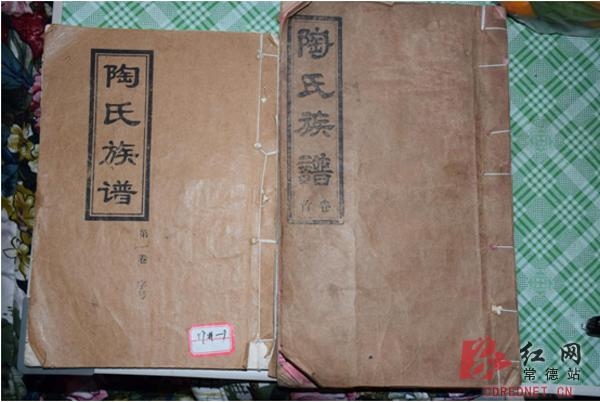 陶氏族谱
第一卷 字号
陶氏族譜
首卷
红网
常德站
CDREDNET.CN